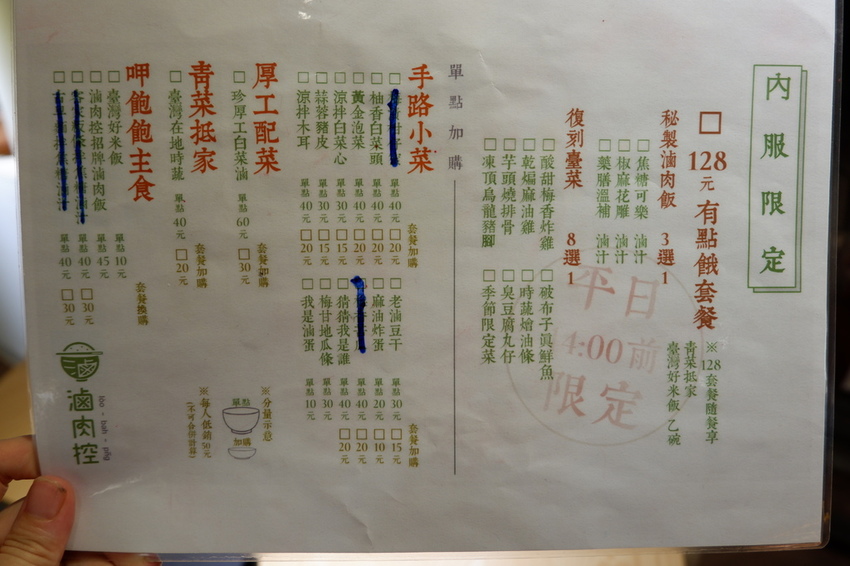 內服限定
□128元 有點餓套餐
※128套餐隨餐享
青菜抵家
臺灣好米飯 乙碗
秘製滷肉飯 3選1
□焦糖可樂 滷汁
□椒麻花雕 滷汁
□藥膳溫補 滷汁
復刻臺菜 8選1
□酸甜梅香炸雞
□乾煸麻油雞
□芋頭燒排骨
□凍頂烏龍豬腳
□破布子真鮮魚
□時蔬燴油條
□臭豆腐丸仔
□季節限定菜
平日
4:00前
限定
單點加購
手路小菜
套餐加購
單點40元 □20元
□柚香白菜頭 單點40元 □20元
□黃金泡菜 單點40元 □20元
□涼拌白菜心 單點30元 □15元
□蒜蓉豬皮 單點30元 □15元
□涼拌木耳 單點40元 □20元
套餐加購
□老滷豆干 單點30元 □15元
□麻油炸蛋 單點20元 □10元
單點40元 □20元
□猜猜我是誰 單點40元 □20元
□梅甘地瓜條 單點30元
□我是滷蛋 單點10元
厚工配菜
套餐加購
□珍厚工白菜滷 單點60元 □30元
※分量示意
單點
加購
青菜抵家
套餐加購
□臺灣在地時蔬 單點40元 □20元
※每人低銷50元
(不可合併計算)
呷飽飽主食
套餐換購
□臺灣好米飯 單點10元
□滷肉控招牌滷肉飯 單點45元
單點40元 □30元
單點40元 □30元
滷肉控
lóo-bah-pn̄g